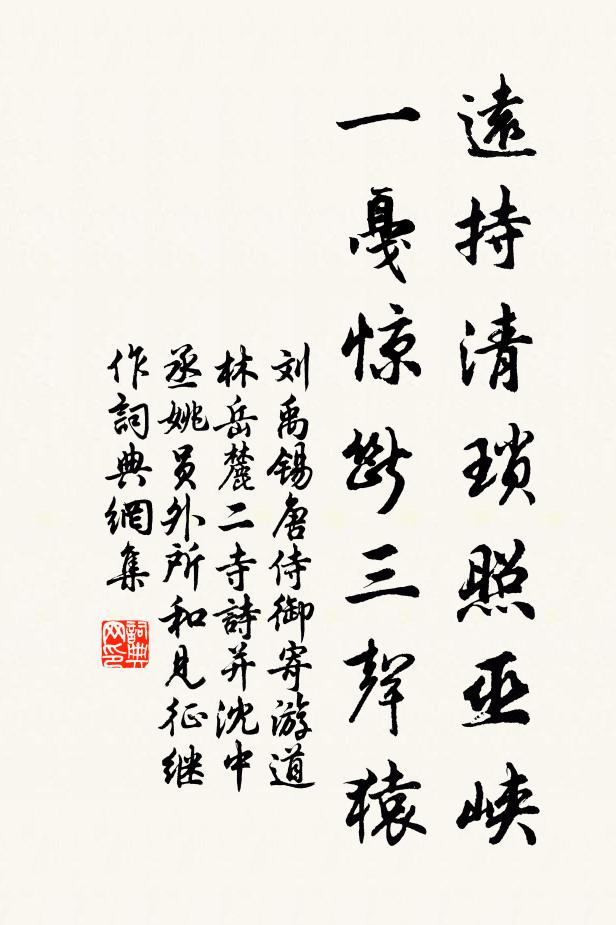 遠持清瑣照巫峽
一戛惊斷三聲猿
刘禹锡唐侍御寄游道
林岳麓二寺詩并沈中
丞姚員外所和見征继
作詞典網集
詞典网印